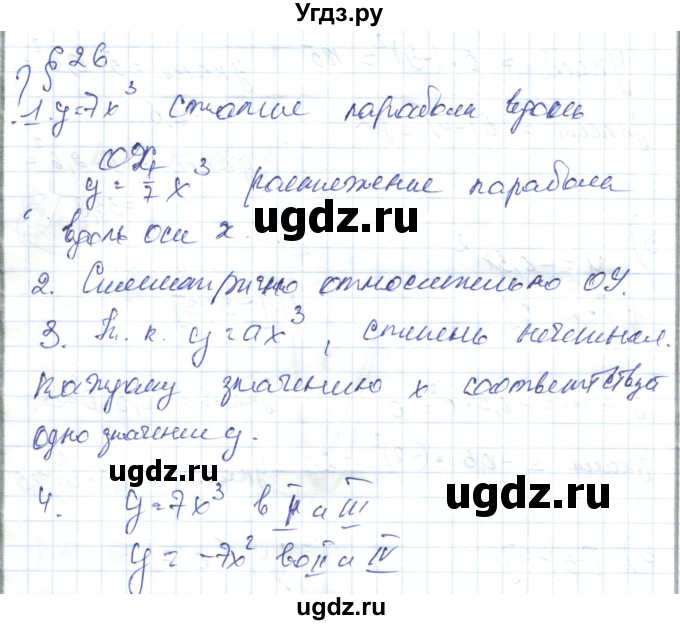 Угдз.ру
? § 26
1. y=7x³ сжатие параболы вдоль
OX
y = 1/7 x³ растяжение параболы
ugdz.ru
вдоль оси x
ugdz.ru
2. Симметрично относительно ОУ.
3. т.к. y=ax³, степень нечетная.
ugdz.ru
Каждому значению x соответствует
одно значение y.
ugdz.ru
4. y=7x³ в I и III
ugdz.ru
y = -7x² во II и IV
ugdz.ru